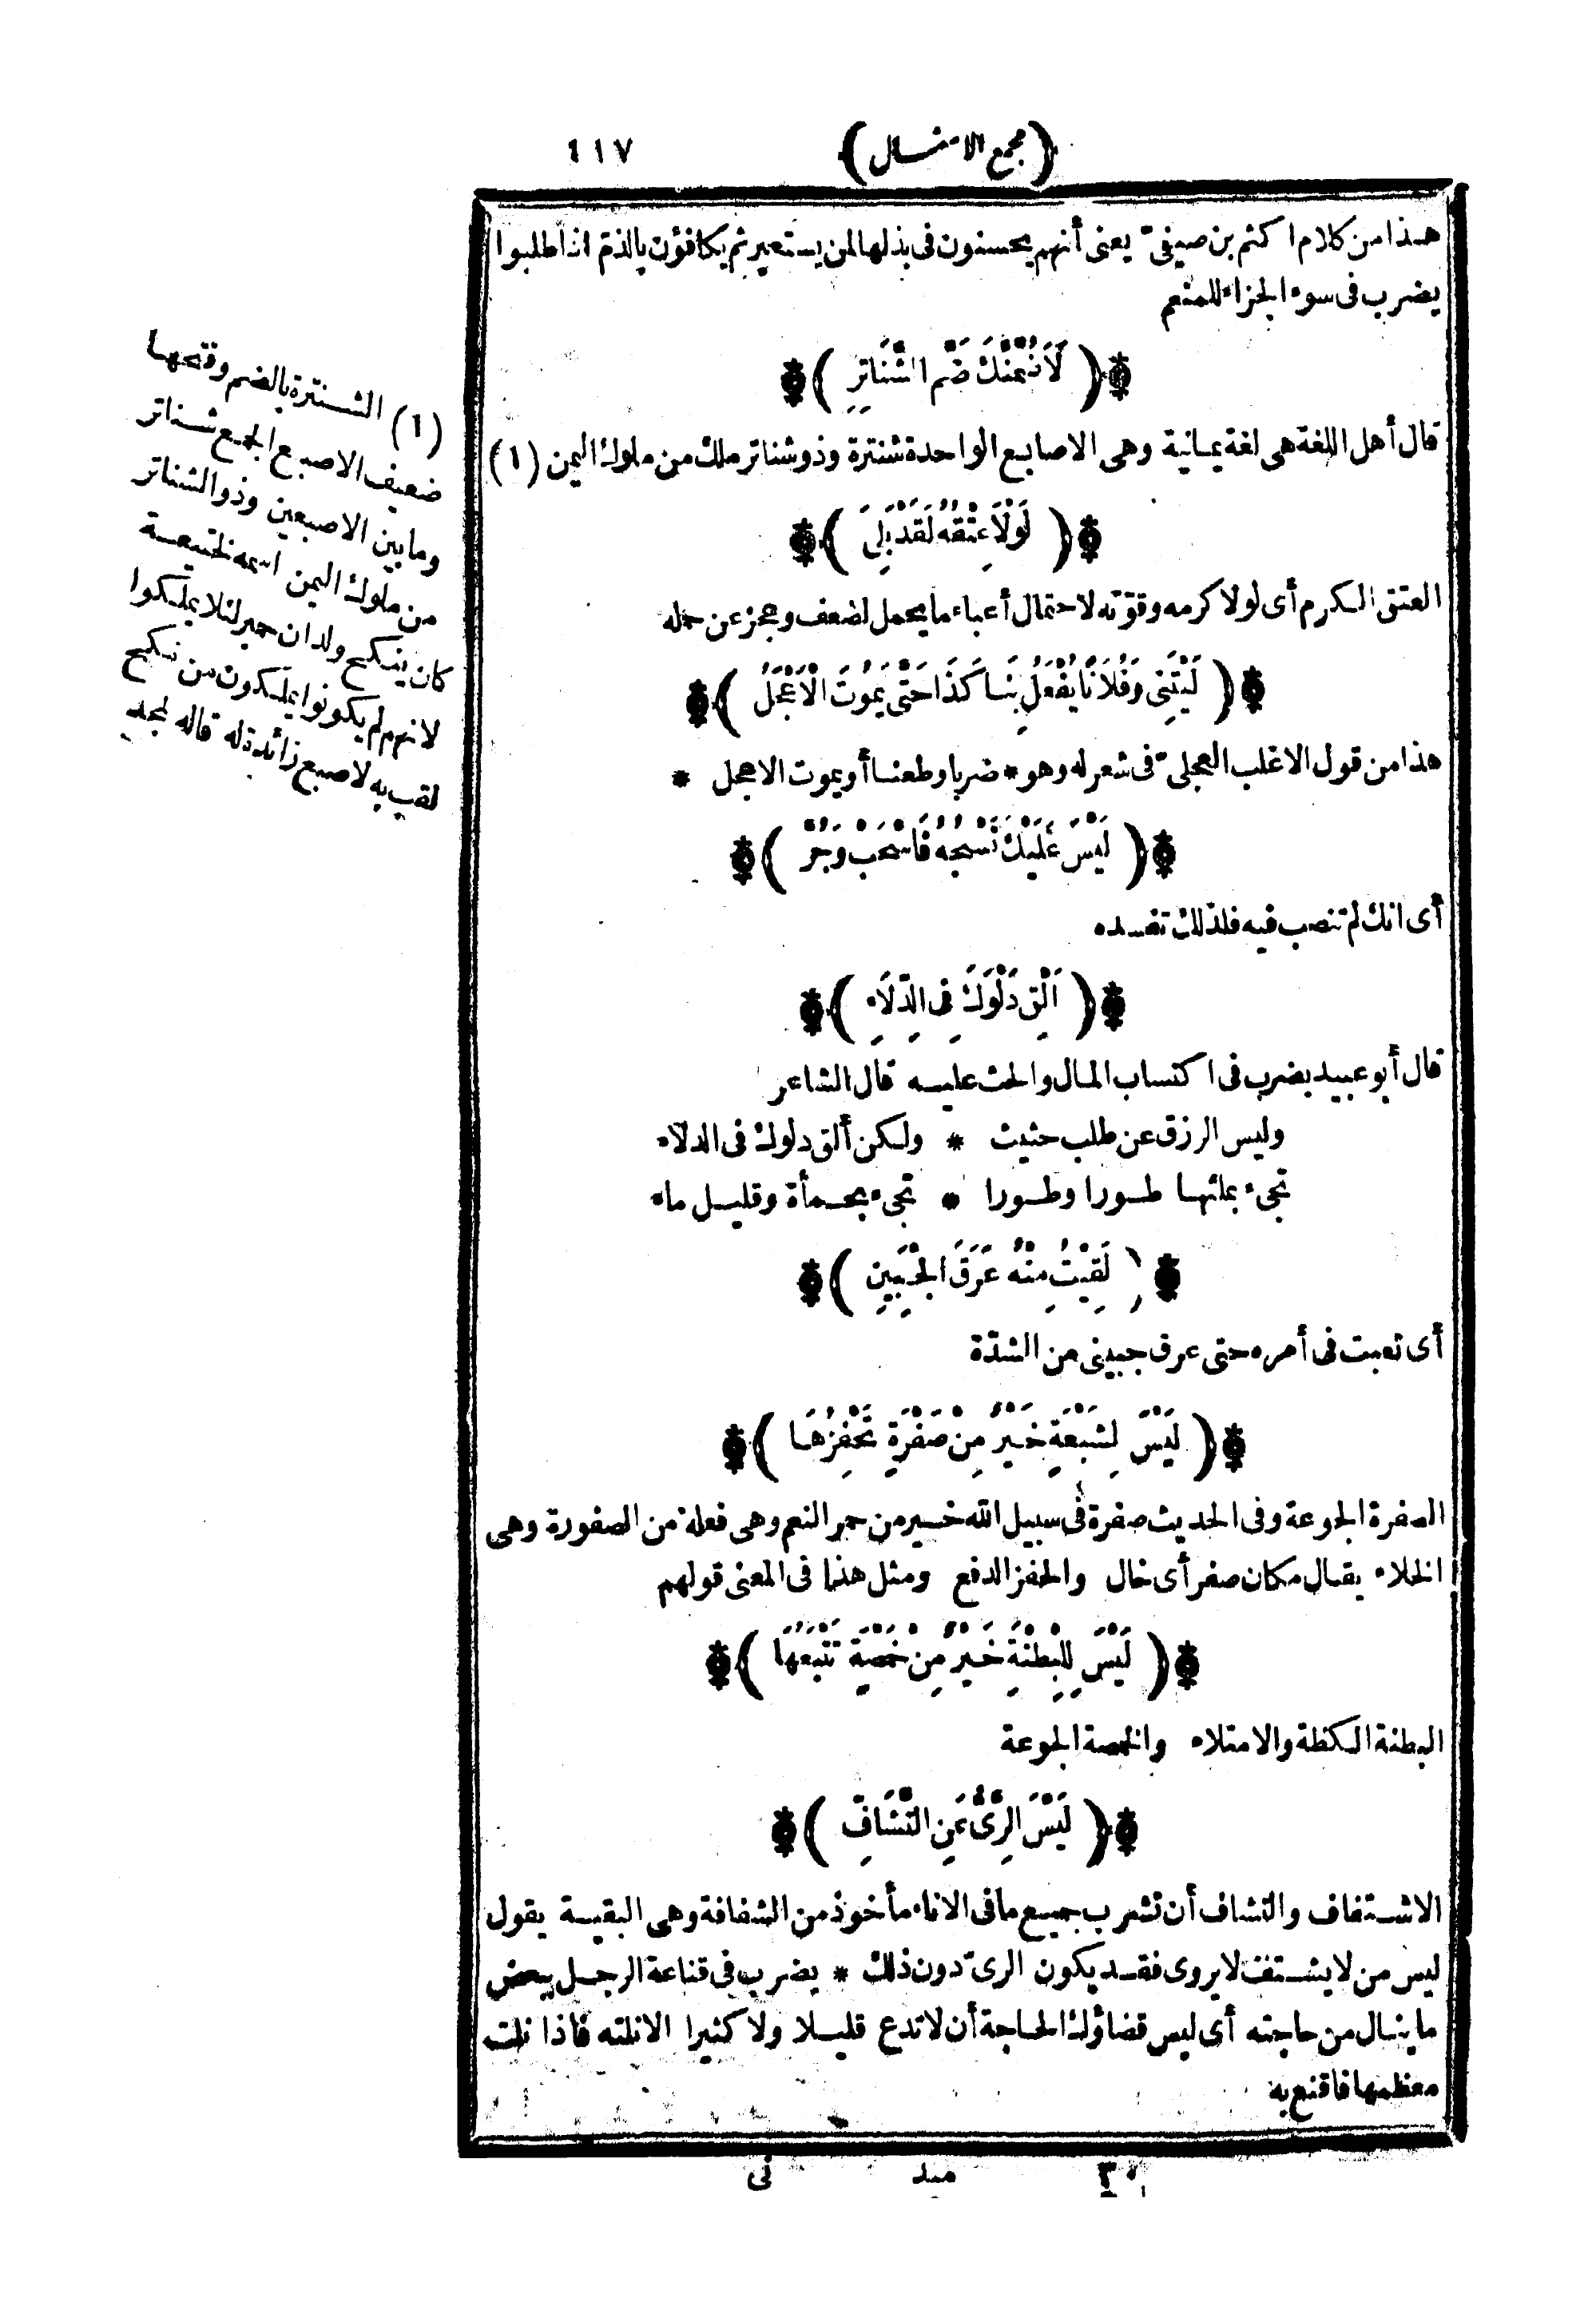 ﴿مجمع الامثال﴾ ١١٧
هذا من كلام اكثم بن صيفىّ يعنى أنهم يحسنون فى بذلها لمن يستعير ثم يكافؤن بالذمّ اذا طلبوا
يضرب فى سوء الجزاء للمنعم
﴿ لَأَضُمَّنَّكَ ضَمَّ الشَّنَاتِرِ ﴾
قال أهل اللغة هى لغة يمانية وهى الاصابع الواحدة شنترة وذو شناتر ملك من ملوك اليمن (١)
﴿ لَوْلَا عِتْقُهُ لَقَدْ بَلِىَ ﴾
العتق الكرم أى لولا كرمه وقوّته لاحتمال أعباء ما يحمل لضعف وعجز عن حمله
﴿ لَيْتَنِى وَفُلَانًا يُفْعَلُ بِنَا كَذَا حَتَّى يَمُوتَ الْاَعْجَلُ ﴾
هذا من قول الاغلب العجلىّ فى شعر له وهو * ضربا وطعنا أو يموت الاعجل *
﴿ لَيْسَ عَلَيْكَ نَسْجُهُ فَاسْحَبْ وَجُرَّ ﴾
أى انك لم تنصب فيه فلذلك تفسده
﴿ اَلْقِ دَلْوَكَ فِى الدِّلَاءِ ﴾
قال أبو عبيد يضرب فى اكتساب المال والحث عليه قال الشاعر
وليس الرزق عن طلب حثيث * ولكن ألق دلوك فى الدلاء
تجىء بملئها طورا وطورا * تجىء بحمأة وقليل ماء
﴿ لَقِيتُ مِنْهُ عَرَقَ الْجَبِينِ ﴾
أى تعبت فى أمره حتى عرق جبينى من الشدّة
﴿ لَيْسَ لِشَبْعَةٍ خَيْرٌ مِنْ صَفْرَةٍ تَحْفِزُهَا ﴾
الصفرة الجوعة وفى الحديث صفرة فى سبيل الله خير من حمر النعم وهى فعلة من الصفورة وهى
الخلاء يقال مكان صفر أى خال والحفز الدفع ومثل هذا فى المعنى قولهم
﴿ لَيْسَ لِلْبِطْنَةِ خَيْرٌ مِنْ خَمْصَةٍ تَتْبَعُهَا ﴾
البطنة الكظة والامتلاء والخمصة الجوعة
﴿ لَيْسَ الرِّىُّ عَنِ التَّشَافِّ ﴾
الاشتفاف والتشاف أن تشرب جميع ما فى الاناء مأخوذ من الشفافة وهى البقية يقول
ليس من لا يشتف لا يروى فقد يكون الرىّ دون ذلك * يضرب فى قناعة الرجل ببعض
ما ينال من حاجته أى ليس قضاؤك الحاجة أن لا تدع قليلا ولا كثيرا الا نلته فاذا نلت
معظمها فاقنع به
٣٠ ميد فى
(١) الشنترة بالضم وفتحها
ضعيف الاصبع الجمع شناتر
وما بين الاصبعين وذو الشناتر
من ملوك اليمن اسمه لختيعة
كان ينكح ولدان حمير لئلا يملكوا
لانهم لم يكونوا يملكون من نكح
لقب به لاصبع زائدة له قاله المجد